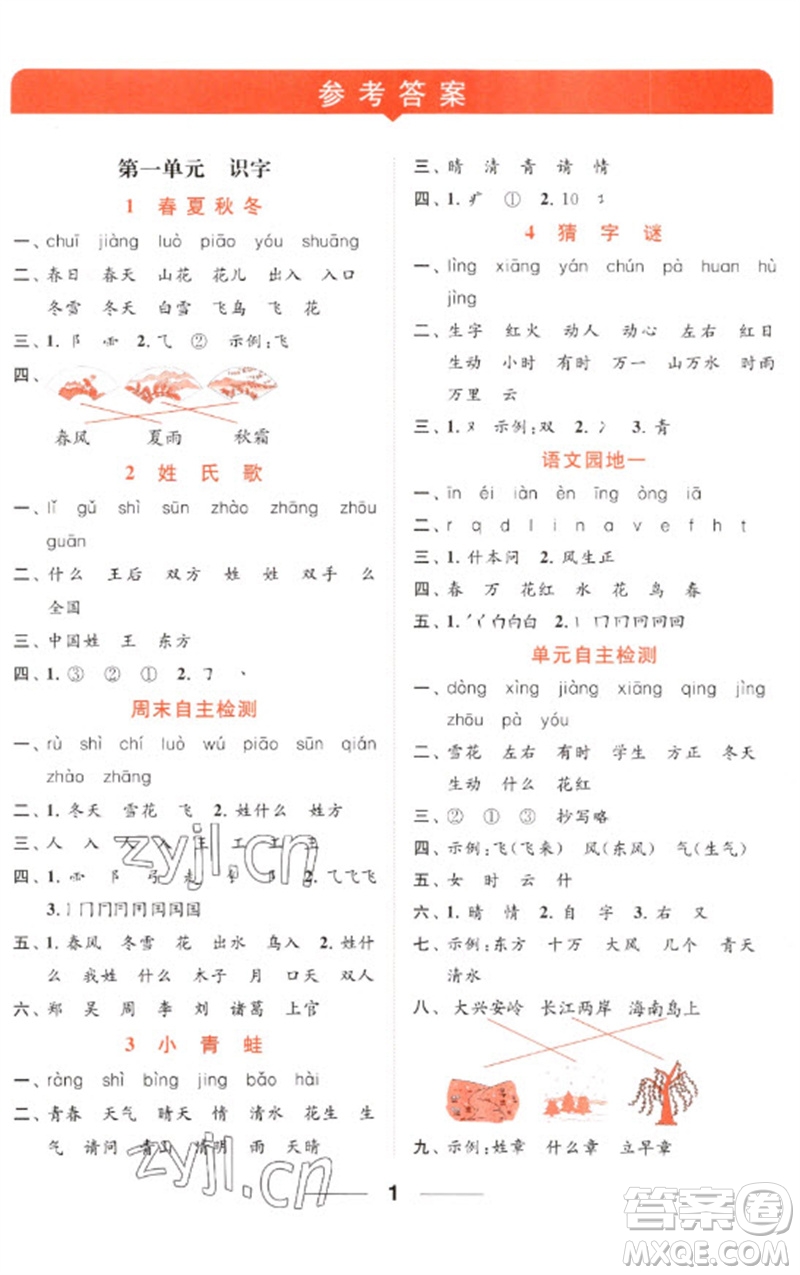 参考答案
第一单元 识字
1 春夏秋冬
一、chuī jiàng luò piāo yóu shuāng
二、春日 春天 山花 花儿 出入 入口
冬雪 冬天 白雪 飞鸟 飞 花
三、1. 阝 ⻗ 2. ⺄ ② 示例:飞
四、
春风 夏雨 秋霜
2 姓氏歌
一、lǐ gǔ shì sūn zhào zhāng zhōu
guān
二、什么 王后 双方 姓 姓 双手 么
全国
三、中国姓 王 东方
四、1. ③ ② ① 2. ㇆ 丶
周末自主检测
一、rù shì chí luò wú piāo sūn qián
zhào zhāng
二、1. 冬天 雪花 飞 2. 姓什么 姓方
三、人 入 人 入 王 工 工 王
四、1. ⻗ 阝 弓
3.
五、1. 春风 冬雪 花 出水 鸟入 2. 什
么 我姓 什么 木子 月 口天 双人
六、郑 吴 周 李 刘 诸葛 上官
3 小青蛙
一、ràng shì bìng jing bǎo hài
二、青春 天气 晴天 情 清水 花生 生
气 请问 青山 清明 雨 天晴
三、晴 清 青 请 情
四、1. 疒 ① 2. 10
4 猜字谜
一、lìng xiāng yán chún pà huan hù
jìng
二、生字 红火 动人 动心 左右 红日
生动 小时 有时 万一 山万水 时雨
万里 云
三、1. 又 示例:双 2. 冫 3. 青
语文园地一
一、īn éi iàn èn īng òng iā
二、r q d l i n a v e f h t
三、1. 什本问 2. 风生正
四、春 万 花红 水 花 鸟 春
五、1. 白白白 2.
单元自主检测
一、dòng xìng jiàng xiāng qing jìng
zhōu pà yóu
二、雪花 左右 有时 学生 方正 冬天
生动 什么 花红
三、② ① ③ 抄写略
四、示例:飞(飞来) 风(东风) 气(生气)
五、女 时 云 什
六、1. 晴 情 2. 自 字 3. 右 又
七、示例:东方 十万 大风 几个 青天
清水
八、大兴安岭 长江两岸 海南岛上
九、示例:姓章 什么章 立早章
1
zyjl.cn
zyjl.cn
答案卷
MXQE.COM